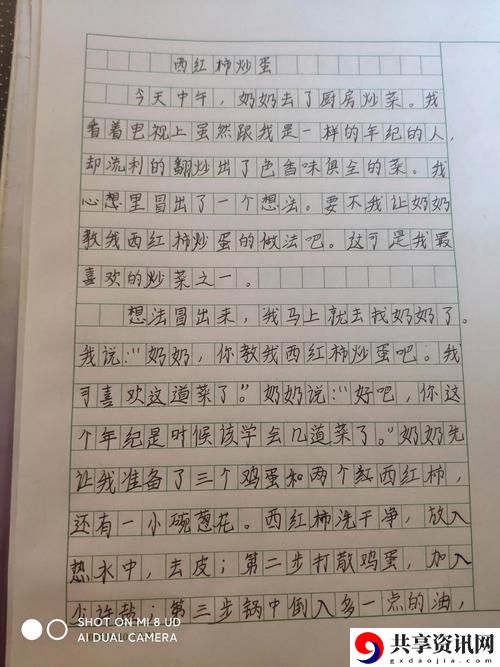 西红柿炒蛋
今天中午，奶奶去了厨房炒菜。我
看着电视上虽然跟我是一样的年纪的人，
却流利的翻炒出了色香味俱全的菜。我
心想里冒出了一个想法。要不我让奶奶
教我西红柿炒蛋的做法吧。这可是我最
喜欢的炒菜之一。
想法冒出来，我马上就去找奶奶了。
我说："奶奶，你教我西红柿炒蛋吧。我
可喜欢这道菜了。"奶奶说："好吧，你这
个年纪是时候该学会几道菜了。"奶奶先
让我准备了三个鸡蛋和两个红西红柿，
还有一小碗葱花。西红柿洗干净，放入
热水中，去皮；第二步打散鸡蛋，加入
少许盐；第三步锅中倒入多一点的油，
SHOT ON MI 8 UD
AI DUAL CAMERA
共享资讯网
gxdaojia.com